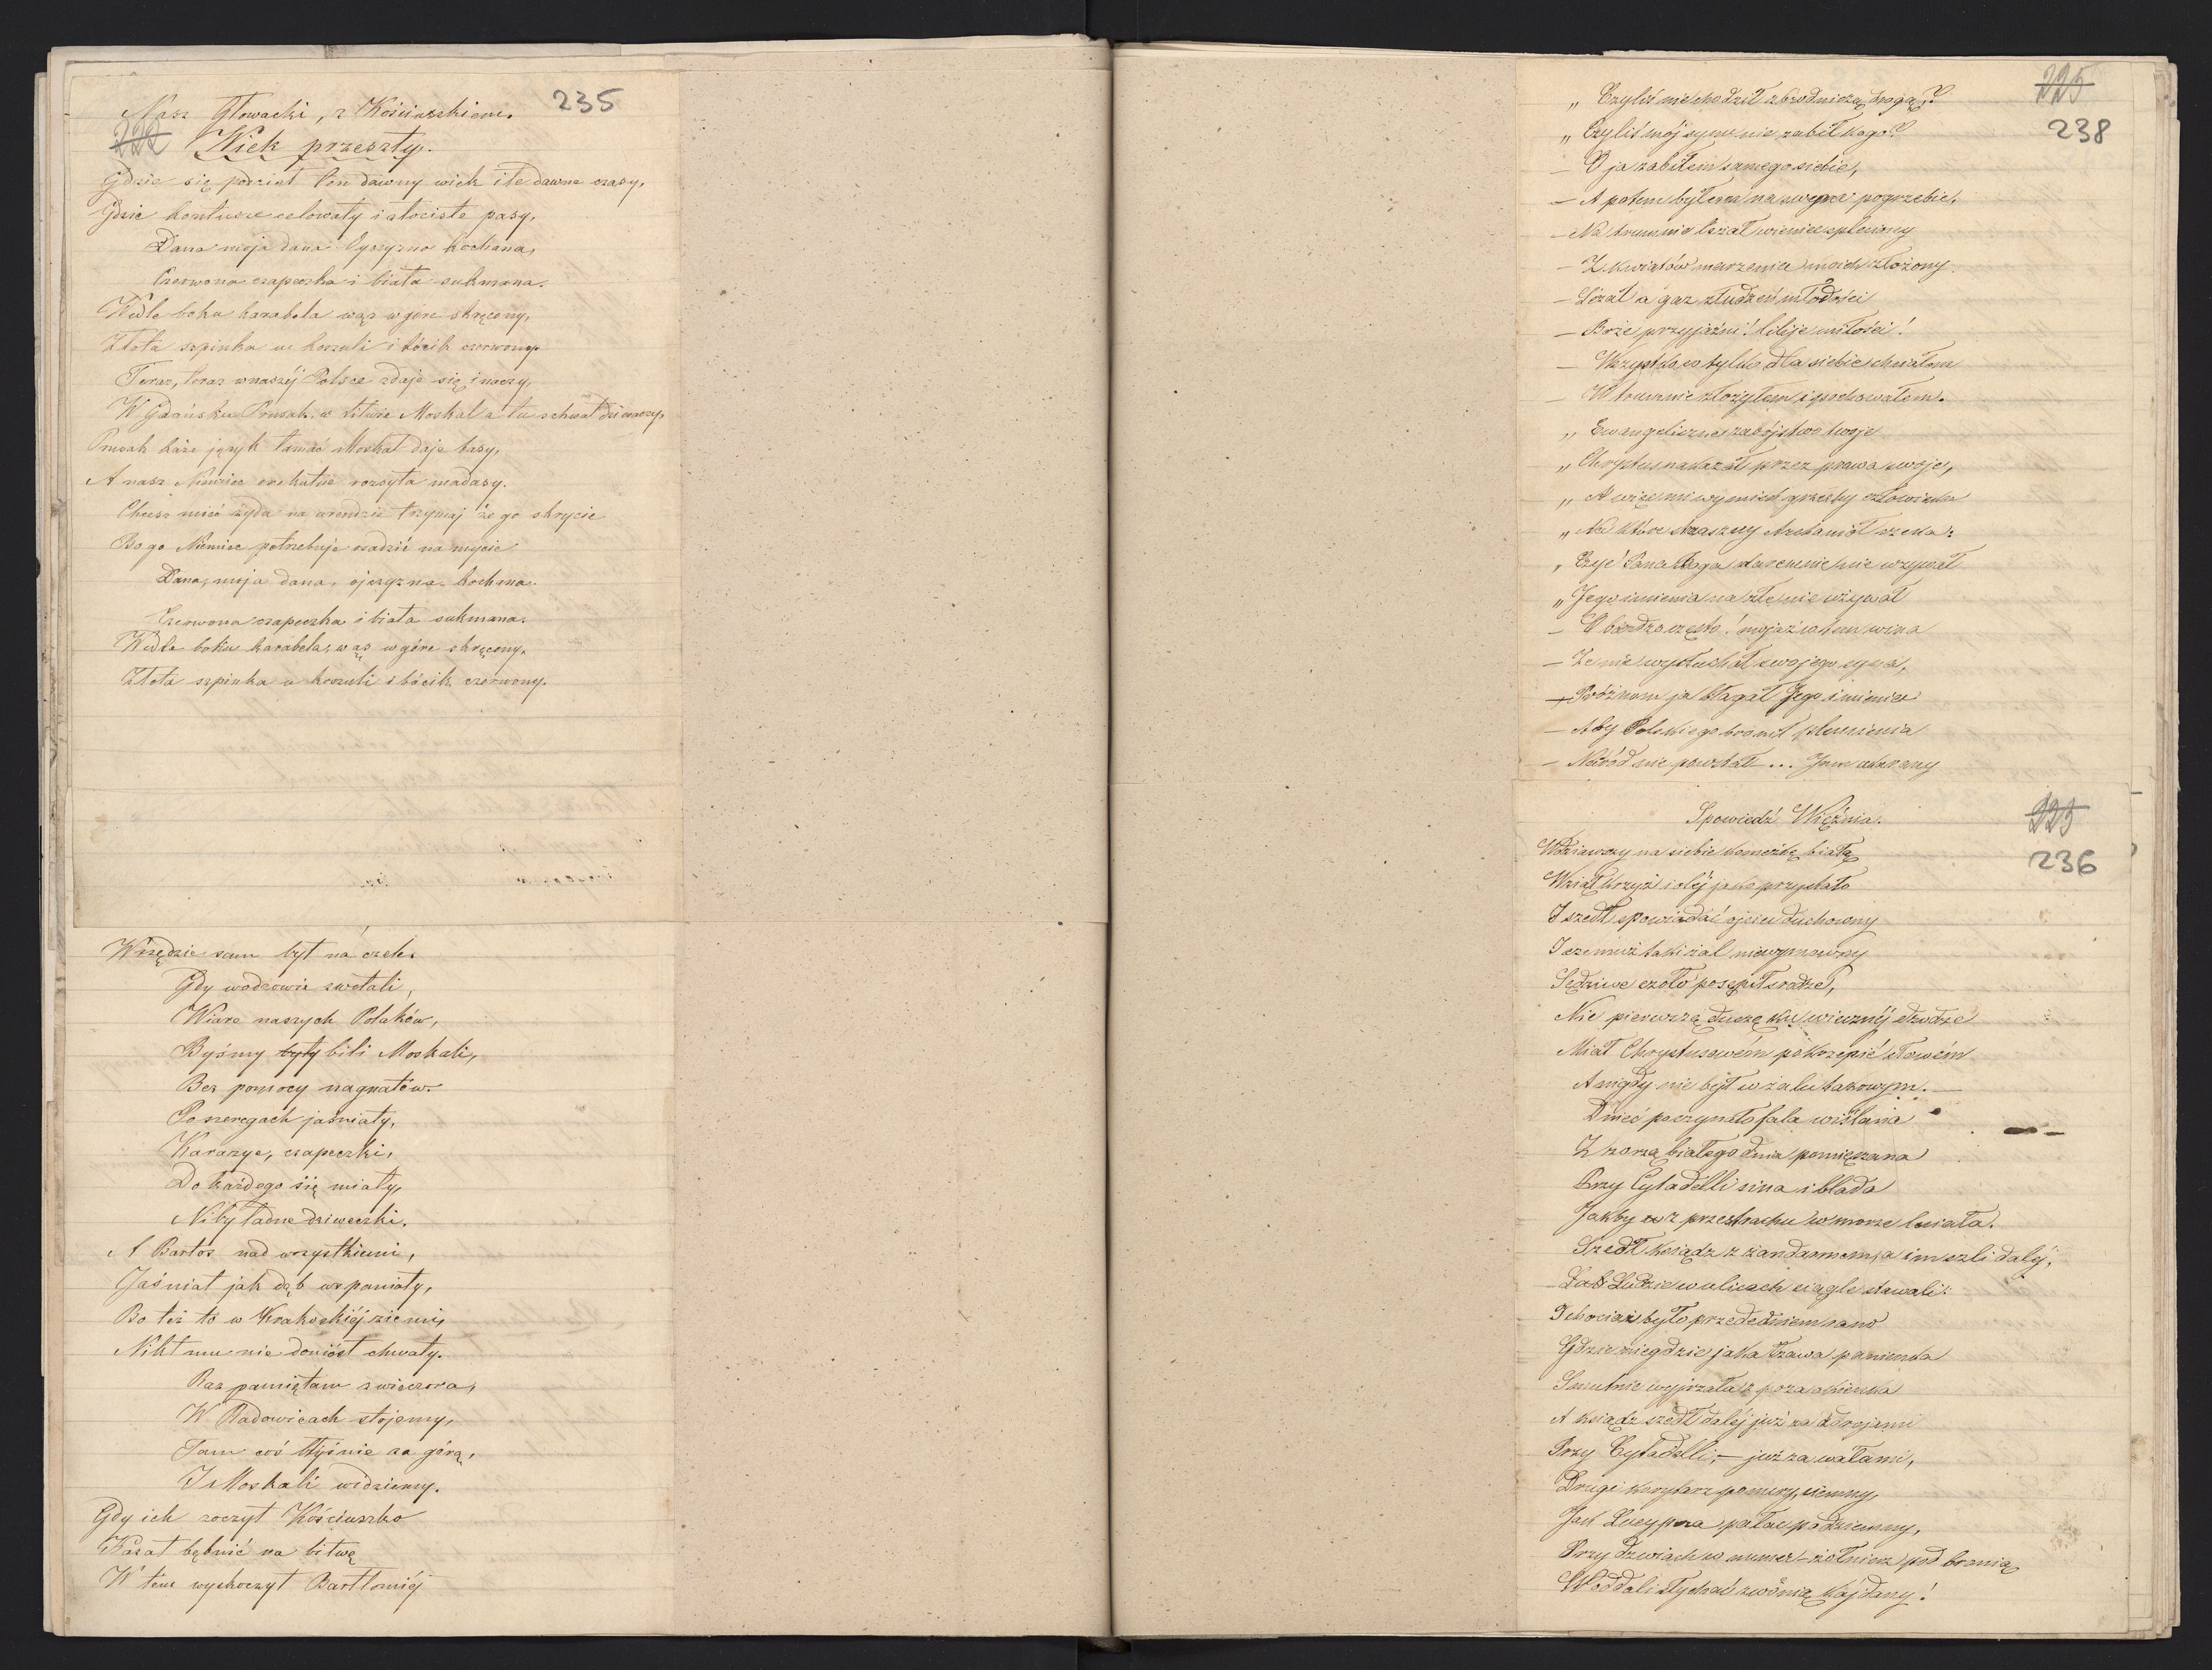 Nasz Głowacki, z Kościuszkiem.
235
222
Wiek przeszły.
Gdzie się podział ten dawny wiek i te dawne czasy,
Gdzie kontusze celowały i złociste pasy,
Dana moja dana Ojczyzno kochana,
Czerwona czapeczka i biała sukmana.
Wedle boku karabela wąs w górę skręcony,
Złota szpinka u koszuli i bócik czerwony.
Teraz, teraz w naszéj Polsce zdaje się inaczy,
W Gdańsku Prusak, w Litwie Moskal a tu schwał dziwaczy,
Prusak każe język łamać Moskal daje basy,
A nasz Niemiec exekutne rozsyła madasy.
Chcesz mieć żyda na arendzie trzymaj że go skrycie
Bo go Niemiec potrzebuje osadzić na mycie
Dana, moja dana, ojczyzna kochana.
Czerwona czapeczka i biała sukmana.
Wedle boku karabela, wąs w górę skręcony.
Złota szpinka u koszuli i bócik czerwony.
Wszędzie sam był na czele.
Gdy wodzowie zwołali,
Wiare naszych Polaków,
Byśmy byly bili Moskali,
Bez pomocy magnatów.
Po szeregach jaśniały,
Karazye, czapeczki,
Do każdego się miały,
Niby ładne dziweczki.
A Bartos nad wszystkiemi,
Jaśniał jak dąb wspaniały,
Bo też to w Krakoskiéj ziemi,
Nikt mu nie doniósł chwały.
Raz pamiętam z wieczora,
W Radowicach stojemy,
Tam coś błyśnie za górą,
I Moskali widziemy.
Gdy ich zoczył Kościuszko
Kazał bębnić na bitwę
W tem wyskoczył Bartłomiéj
225
238
„ Czyliś nie chodził zbrodniczą drogą?
„ Czyliś mój synu nie zabił kogo?
— O ja zabiłem samego siebie,
— A potem byłem na swym pogrzebie,
— Na trumnie leżał wieniec spleciony
— Z kwiatów marzenia moich złożony.
— Leżał a gaz złudzeń młodości
— Boże przyjaźni! lilije miłości!
— Wszystko co tylko dla siebie chciałem
— W trumnie złożyłem i pochowałem.
„ Ewangeliczne zabójstwo twoje
„ Chrystus nakazał przez prawa swoje,
„ A więc mi wymień grzechy człowieka
„ Na które straszny Archanioł czeka:
„ Czyś Pana Boga daremnie nie wzywał
„ Jego imienia na złe nie używał
— O bardzo często! moja w tem wina
— Że nie wysłuchał swojego syna,
— Próżnom ja błagał Jego imienia
— Aby Polskiego bronił plemienia
— Naród nie powstał... Jam ukarany
223
236
Spowiedź Więźnia.
Wdziawszy na siebie komeżkę białą
Wziął krzyż i oléj jako przystało
I szedł spowiadać ojciec duchowny
I czemuż taki żal niewymowny
Sędziwe czoło posępił srodze,
Nie pierwszą duszę ku wiecznéj drodze
Miał Chrystusowém pokrzepić słowém
A nigdy nie był w żalu takowym. —
Dnieć poczynało fala wiślana
Z zorzą białego dnia pomięszana
Przy Cytadelli sina i blada
Jakby z przestrachu w morze leciała.
Szedł ksiądz z żandarmem, a im szli daléj,
Ludzie w ulicach ciągle stawali:
I chociaż było przededniem rano
Gdzie niegdzie jaka łzawa panienka
Smutnie wyjrzała z poza okienka
A ksiądz szedł daléj już za zdrojami
Przy Cytadelli, — już za wałami,
Drugi korytarz ponury, ciemny,
Jak Lucypra pałac podziemny,
Przy drzwiach co numer — żołnierz pod bronią
W oddali słychać zwónią kajdany!